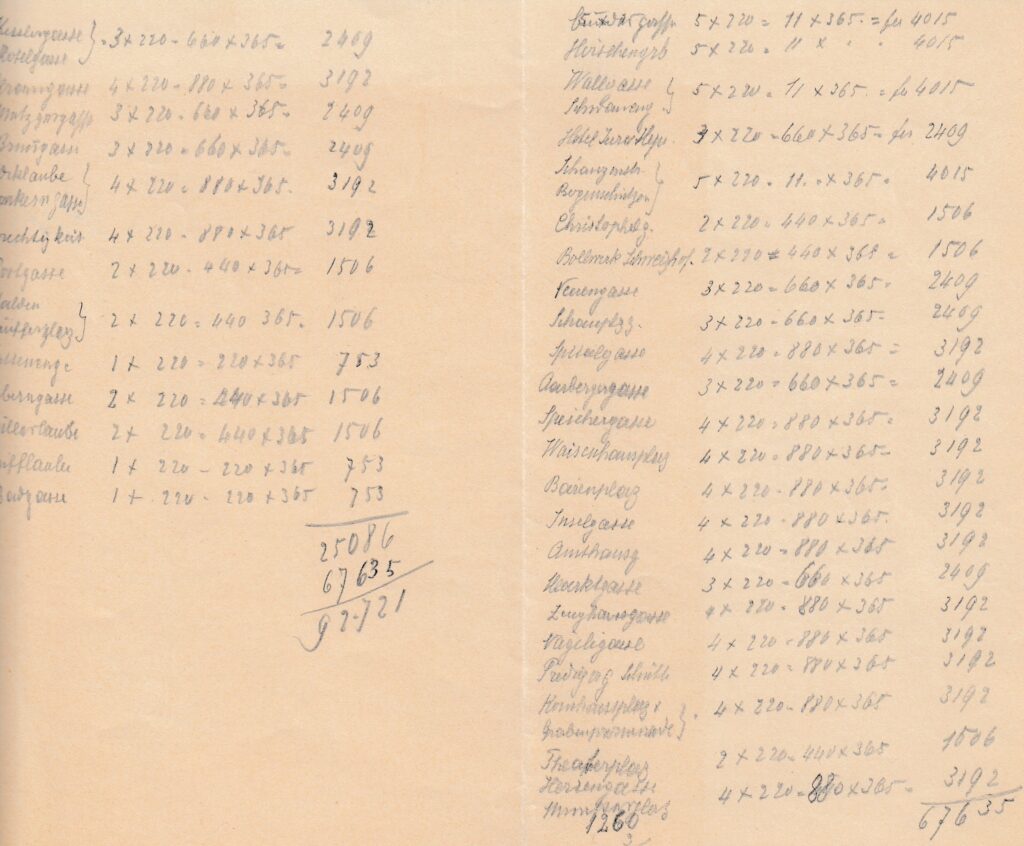 Kesslergasse } = 3 x 220 - 660 x 365 = 2409
Hotelgasse
Kramgasse 4 x 220 - 880 x 365 = 3192
Metzgergasse 3 x 220 - 660 x 365 - 2409
Brunngasse 3 x 220 = 660 x 365 - 2409
4 x 220 = 880 x 365. 3192
Junkerngasse }
rechtigkeit 4 x 220 - 880 x 365 3192
Postgasse 2 x 220 - 440 x 365 = 1506
alden
2 x 220 = 440 365 = 1506
1 x 220 = 220 x 365 753
2 x 220 = 240 x 365 1506
2 x 220 = 440 x 365 1506
1 x 220 - 220 x 365 753
Badgasse 1 x 220 - 220 x 365 753
25086
67635
92721
Bundesgasse 5 x 220 = 11 x 365 = fr 4015
Hirschengrb 5 x 220 = 11 x " " 4015
Wallgasse } 5 x 220 = 11 x 365 = fr 4015
Schwaneng
Hotel Jura 3 x 220 = 660 x 365 = fr 2409
Schanzenstr. } 5 x 220 = 11.. x 365 = 4015
Bogenschützen
Christophelg. 2 x 220 = 440 x 365 = 1506
Bollwerk Schweizhof. 2 x 220 = 440 x 365 = 1506
Neuengasse 3 x 220 - 660 x 365 = 2409
Schauplzg. 3 x 220 - 660 x 365 = 2409
Spitalgasse 4 x 220 = 880 x 365 = 3192
Aarbergergasse 3 x 220 = 660 x 365 = 2409
Speichergasse 4 x 220 = 880 x 365 = 3192
Waisenhausplaz 4 x 220 = 880 x 365 = 3192
Bärenplaz 4 x 220 - 880 x 365 = 3192
Inselgasse 4 x 220 - 880 x 365. 3192
Amthausg 4 x 220 = 880 x 365 3192
Marktgasse 3 x 220 - 660 x 365 2409
Zeughausgasse 4 x 220 - 880 x 365 3192
Nägeligasse 4 x 220 - 880 x 365 3192
Predigerg Schütte 4 x 220 = 880 x 365 3192
Kornhausplaz & } 4 x 220 - 880 x 365 3192
Grabenpromenade
Theaterplaz 2 x 220 - 440 x 365 1506
Herrengasse 4 x 220 = 880 x 365 = 3192
Münsterplaz 67635
1260